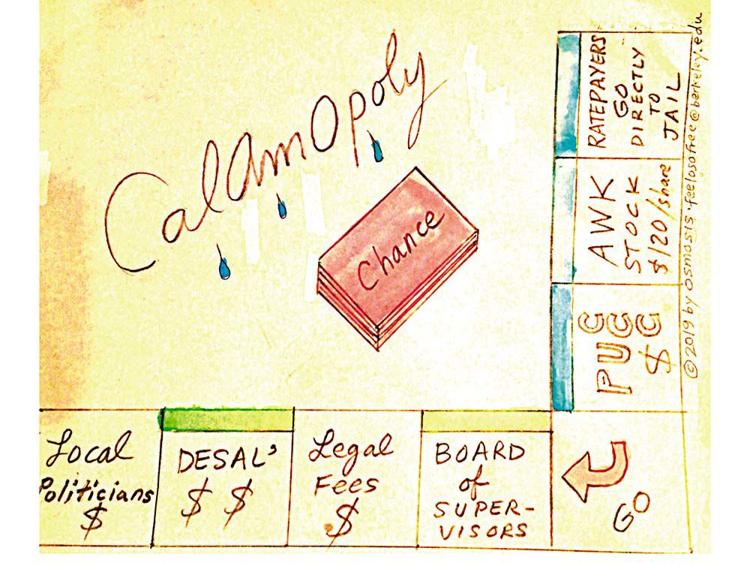 CalAmOpoly
Chance
RATEPAYERS
GO
DIRECTLY
TO
JAIL
AWK
STOCK
$120/share
PUC
$
© 2019 by OSMOSIS·feelosofree@berkeley.edu
Local
Politicians
$
DESAL'
$ $
Legal
Fees
$
BOARD
of
SUPER-
VISORS
GO